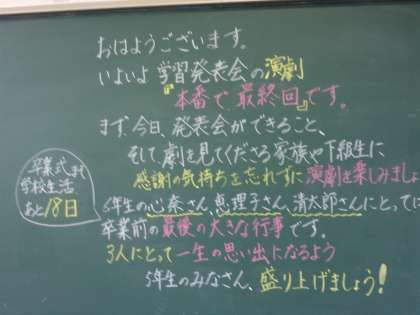 おはようございます。
いよいよ学習発表会の演劇
『本番で最終回』です。
まず、今日、発表会ができること、
そして、劇を見てくださる家族や下級生に
感謝の気持ちを忘れずに演劇を楽しみましょ
6年生の心奈さん、恵理子さん、清太郎さんにとっては
卒業前の最後の大きな行事です。
3人にとって一生の思い出になるよう
5年生のみなさん、盛り上げましょう!
卒業式まで
学校生活
あと18日